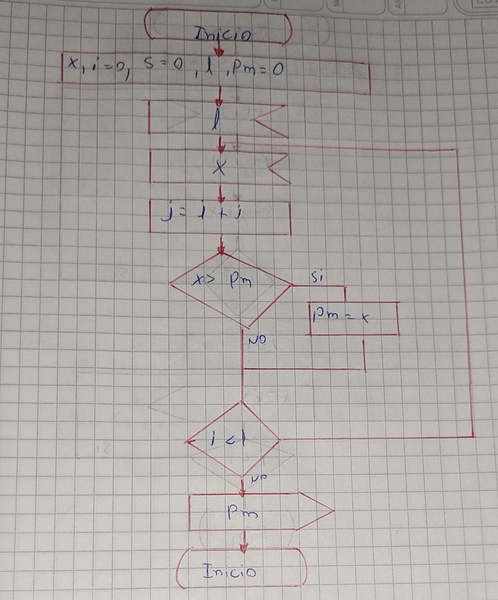 Inicio
x, i=0, S=0, l, Pm=0
l
x
i = i + i
x> Pm
Si
Pm = x
NO
i < l
NO
Pm
Inicio